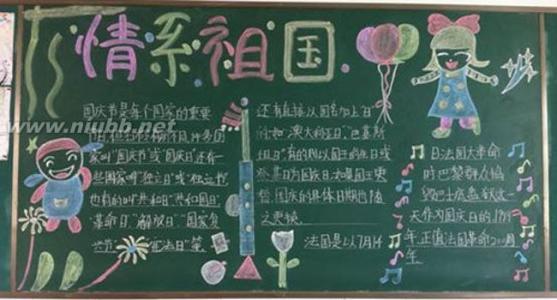 情系祖国
国庆节是每个国家的重要
节日,但名称有所不同,许多国
家叫"国庆节"或"国庆日",还有一
些国家叫"独立日"或"独立节",
也有的叫"共和日""共和国日"
"革命日""解放日""国家复
兴节" "宪法日"等
还有直接以国名加上"日"
的,如"澳大利亚日"、"巴基斯
坦日",有的则以国王的生日或
登基日为国庆日,如遇国王更
替,国庆的具体日期也随
之更换
法国是以7月14
日法国大革命
时巴黎群众攻
天作为国庆日的,1989
年,正值法国革命200周
年
www.niubb.net